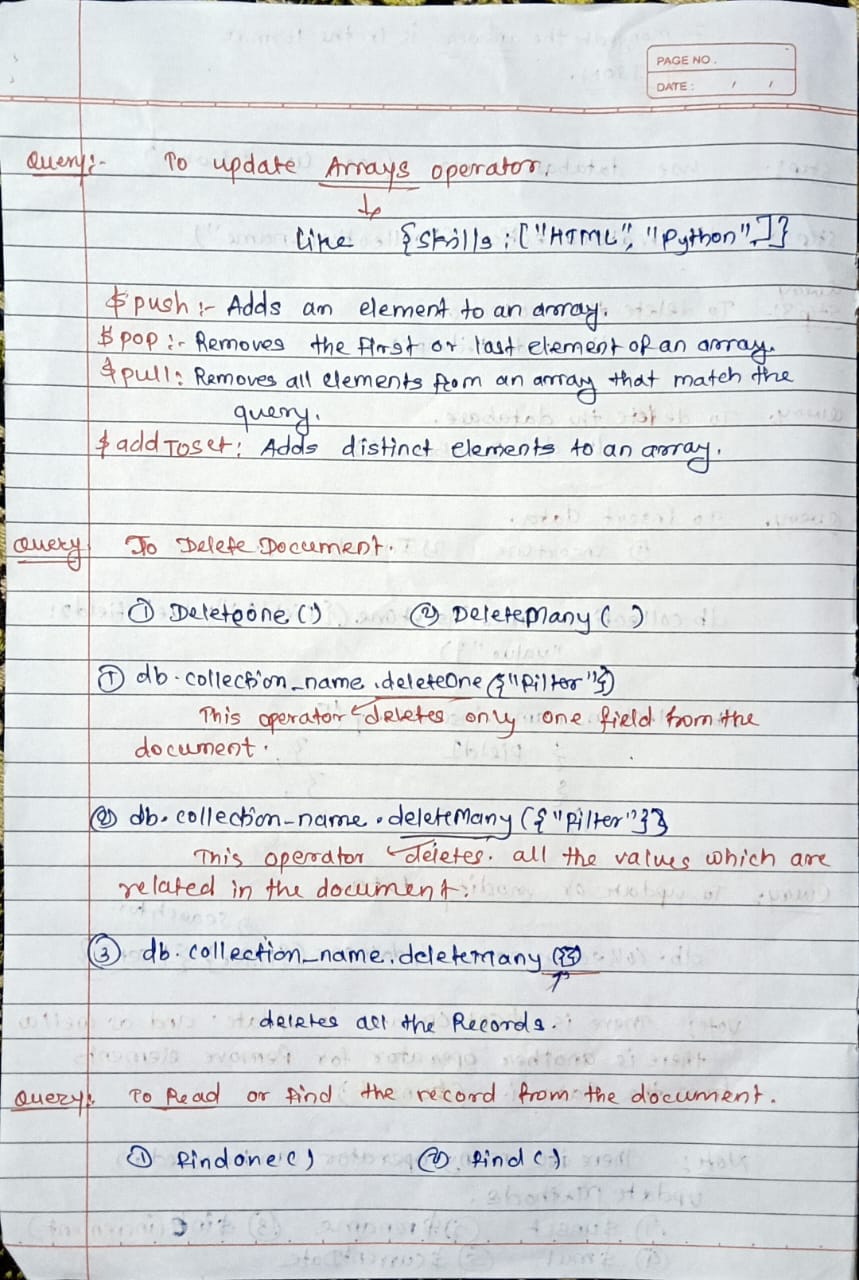 PAGE NO.
DATE: / /
Query:- To update Arrays operator.
like {Skills : ["HTML", "Python",]}
$push :- Adds an element to an array.
$pop :- Removes the first or last element of an array.
$pull: Removes all elements from an array that match the
query.
$addToSet: Adds distinct elements to an array.
Query To Delete Document.
① Deleteone() ② DeleteMany( )
① db.collection_name.deleteOne({"Filter"})
This operator deletes only one field from the
document.
② db.collection-name.deleteMany({"Filter"}}
This operator deletes. all the values which are
related in the document.
③ db.collection_name.deletemany({})
deletes all the Records.
Query: To Read or find the record from the document.
① findone() ② find()